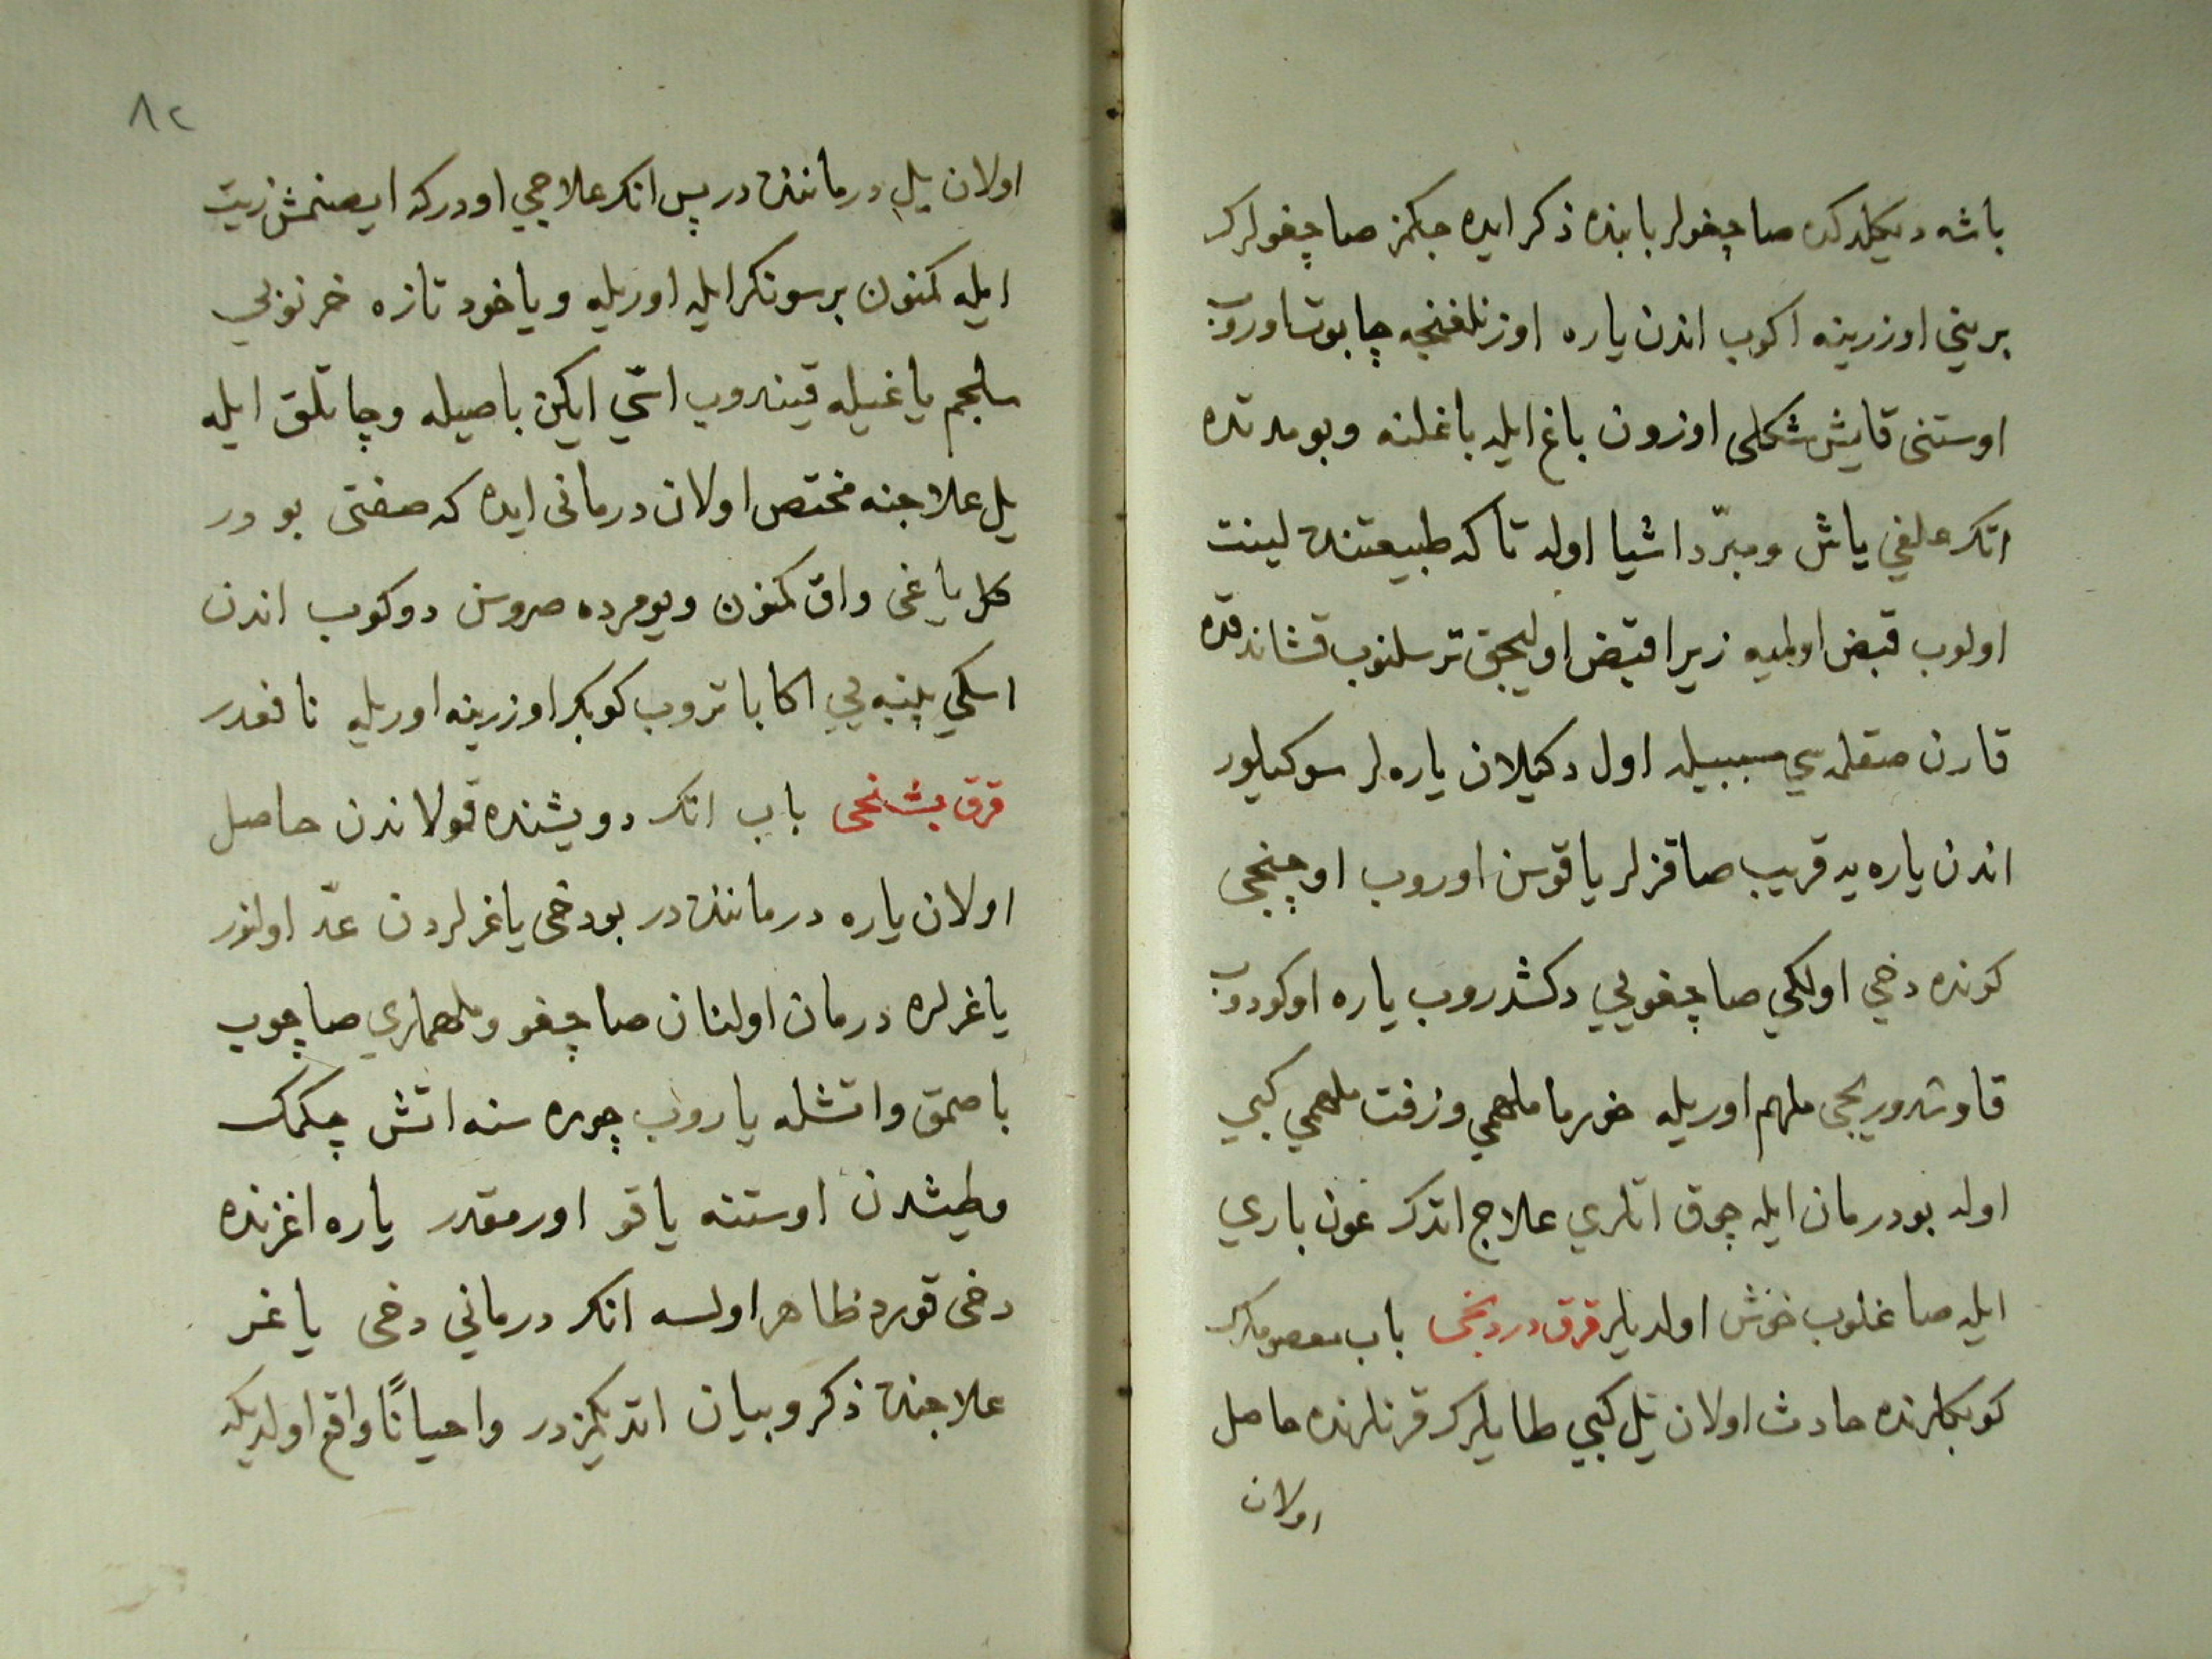 باشه دیكلدكده صاچغولر بابنده ذكر ایده جكمز صاچغولرك
برینی اوزرینه اكوب اندن یاره اوزنلغنجه چابوت اوروب
اوستنی قایش شكلی اوزون باغ ایله باغلنه و بو مدتده
اتك علفی یاش و مبرّد اشیا اوله تا كه طبیعتنده لینت
اولوب قبض اولمیه زیرا قبض اولیجق ترسلنوب قشاندقده
قارن صقلمه سی سببیله اول دكیلان یاره لر سوكیلور
اندن یاره یه قریب صاقزلر یاقوسن اوروب اوچنجی
كونده دخی اولكی صاچغویی دكشدروب یاره اوكودوب
قاوشدوریجی ملهم اوریله خورما ملهمی و زفت ملهمی كبی
اوله بو درمان ایله چوق اتلری علاج اتدك عون باری
ایله صاغلوب خوش اولدیلر قرق دردنجی باب معصوملرك
كوبكلرنده حادث اولان یل كبی طایلرك قرنلرنده حاصل
اولان
٨٢
اولان یل درماننده در پس انك علاجی اودركه ایصنمش زیت
ایله كمنون بر سونكر ایله اوریله و یاخود تازه خرنوبی
سلجم یاغیله قیندوب اسّی ایكن باصیله و چاتلق ایله
یل علاجنه مختص اولان درمانی ایده كه صفتی بو در
كل یاغی و اق كمنون و یومرده صروسن دوكوب اندن
اسكی پنبه یی اكا باتروب كوبكر اوزرینه اوریله نافعدر
قرق بشنجی باب اتك دویشنده قولاندن حاصل
اولان یاره درماننده در بو دخی یاغرلردن عدّ اولنور
یاغرلره درمان اولنان صاچغو و ملهملری صاچوب
باصمق و اتشله یاروب چوره سنه اتش چكمك
و طیشدن اوستنه یاقو اورمقدر یاره اغزنده
دخی قورد ظاهر اولسه انك درمانی دخی یاغر
علاجنده ذكر و بیان اتدیكمزدر و احیاناً واقع اولدیكه